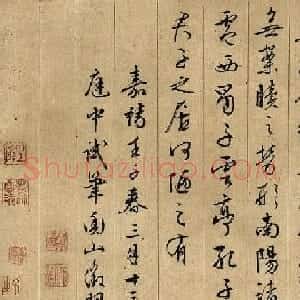 無案牘之勞形南陽諸
廬西蜀子雲亭孔子
君子之居何陋之有
嘉靖壬子春三月十
庭中試筆衡山徵明
Shufaziliao.com